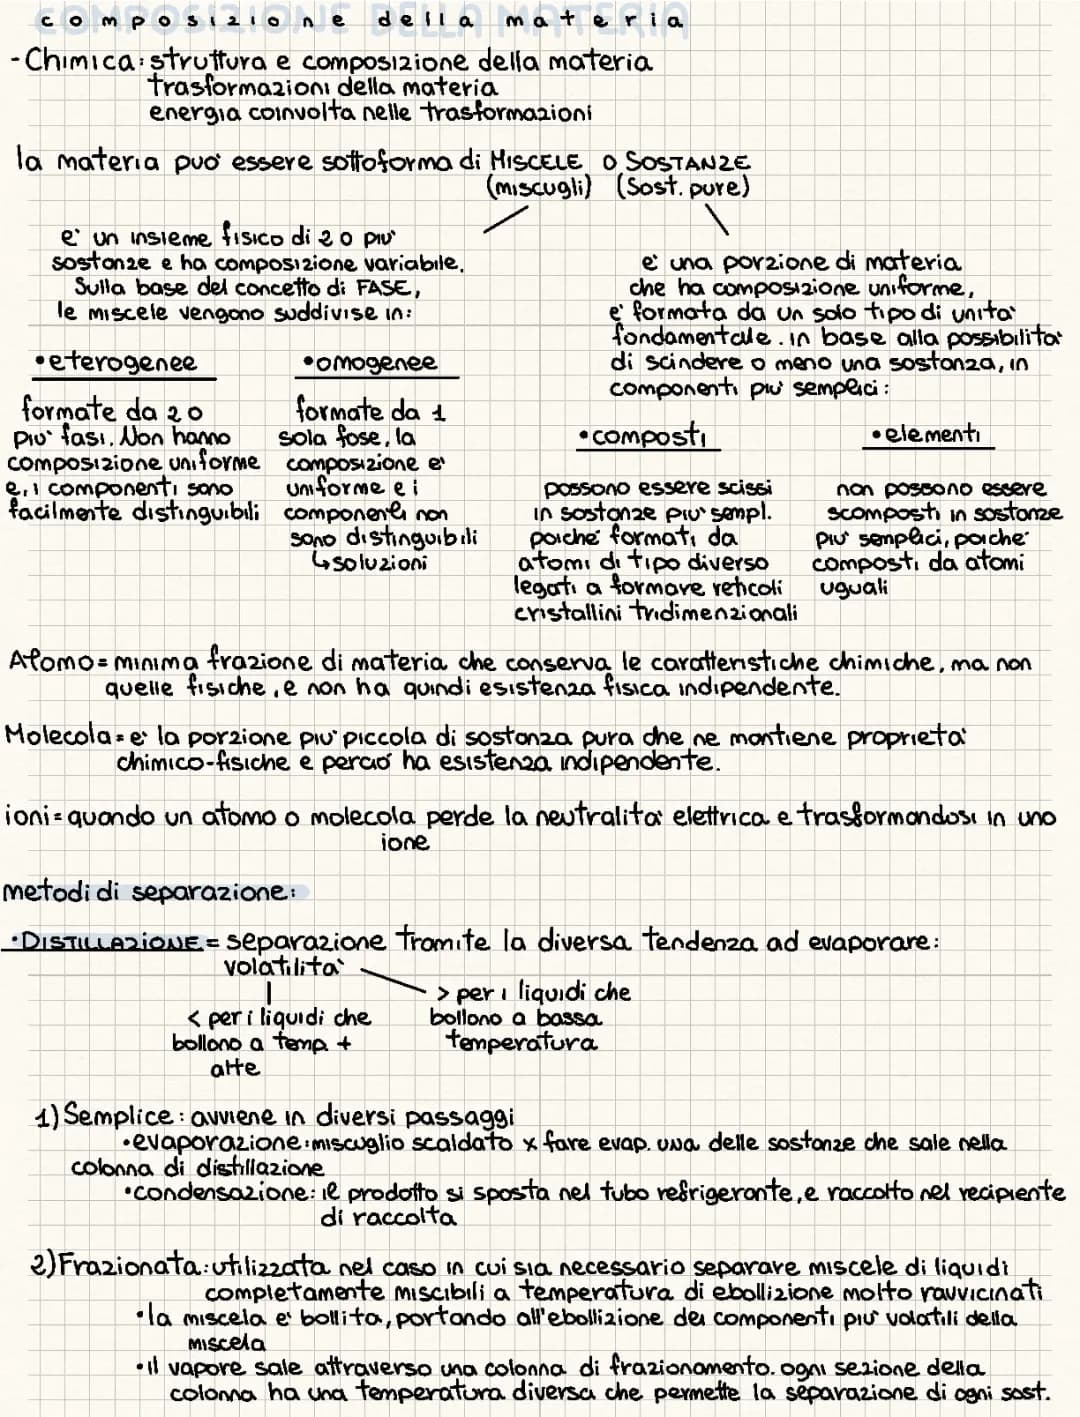 COMPOSIZIONE DELLA MATERIA
composizione della materia
-Chimica: struttura e composizione della materia
trasformazioni della materia
energia coinvolta nelle trasformazioni
la materia puo' essere sottoforma di MISCELE O SOSTANZE
(miscugli) (Sost. pure)
e' un insieme fisico di 2 o piu'
sostanze e ha composizione variabile.
Sulla base del concetto di FASE,
le miscele vengono suddivise in:
•eterogenee
formate da 2 o
piu' fasi. Non hanno
composizione uniforme
e, i componenti sono
facilmente distinguibili
•omogenee
formate da 1
sola fase, la
composizione e'
uniforme e i
componenti non
sono distinguibili
↳soluzioni
e' una porzione di materia
che ha composizione uniforme,
e' formata da un solo tipo di unita'
fondamentale. in base alla possibilita'
di scindere o meno una sostanza, in
componenti piu' semplici:
•composti
possono essere scissi
in sostanze piu' sempl.
poiche' formati da
atomi di tipo diverso
legati a formare reticoli
cristallini tridimenzionali
•elementi
non possono essere
scomposti in sostanze
piu' semplici, poiche'
composti da atomi
uguali
Atomo= minima frazione di materia che conserva le caratteristiche chimiche, ma non
quelle fisiche, e non ha quindi esistenza fisica indipendente.
Molecola= e' la porzione piu' piccola di sostanza pura che ne mantiene proprieta'
chimico-fisiche e percio' ha esistenza indipendente.
ioni= quando un atomo o molecola perde la neutralita' elettrica e trasformandosi in uno
ione
metodi di separazione:
•DISTILLAZIONE= separazione tramite la diversa tendenza ad evaporare:
volatilita'
< per i liquidi che
bollono a temp. +
alte
> per i liquidi che
bollono a bassa
temperatura
1) Semplice: avviene in diversi passaggi
•evaporazione: miscuglio scaldato x fare evap. una delle sostanze che sale nella
colonna di distillazione
•condensazione: il prodotto si sposta nel tubo refrigerante, e raccolto nel recipiente
di raccolta
2) Frazionata: utilizzata nel caso in cui sia necessario separare miscele di liquidi
completamente miscibili a temperatura di ebollizione molto ravvicinati
•la miscela e' bollita, portando all'ebollizione dei componenti piu' volatili della
miscela
•il vapore sale attraverso una colonna di frazionamento. ogni sezione della
colonna ha una temperatura diversa che permette la separazione di ogni sost.